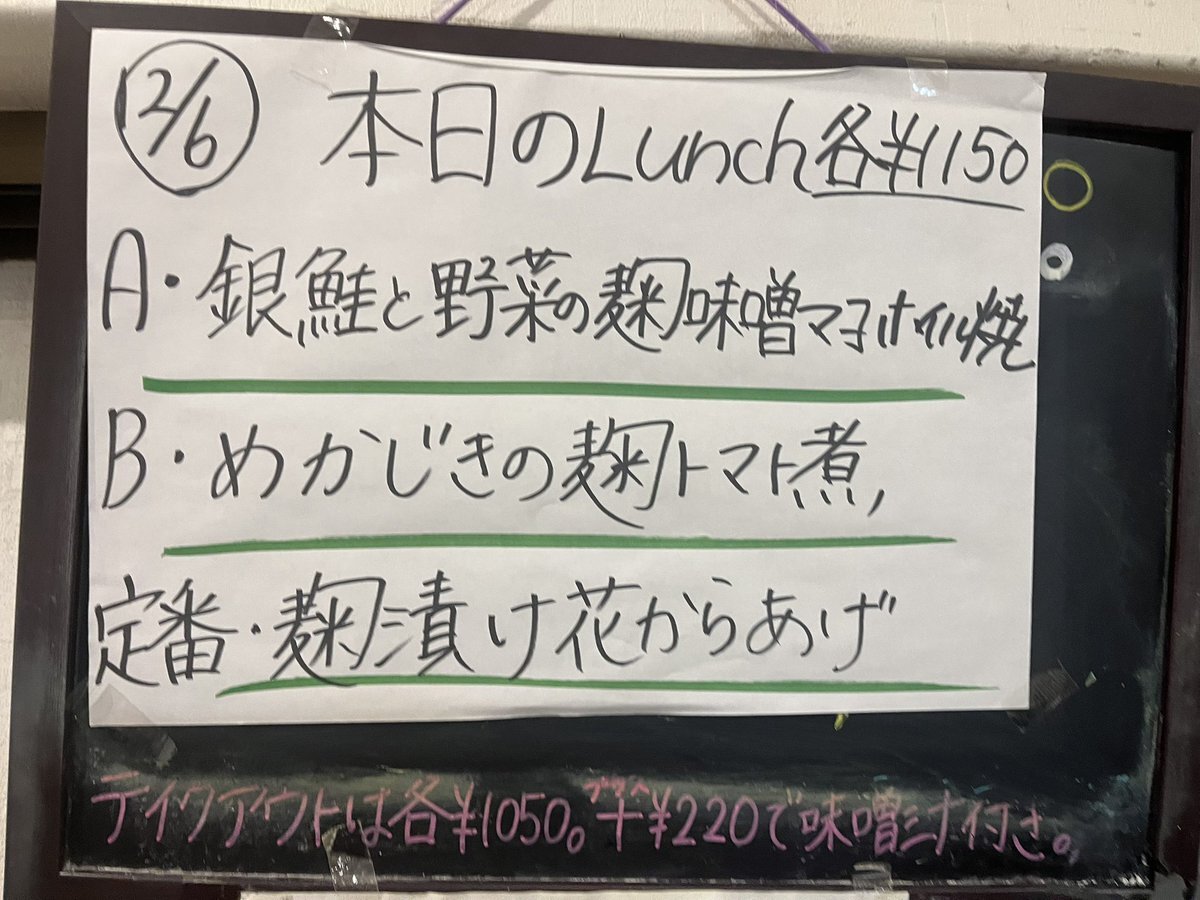 12/6 本日のLunch各¥1150
A・銀鮭と野菜の麹味噌マヨホイル焼
B・めかじきの麹トマト煮
定番・麹漬け花からあげ
テイクアウトは各¥1050。プラス+¥220で味噌汁付き。